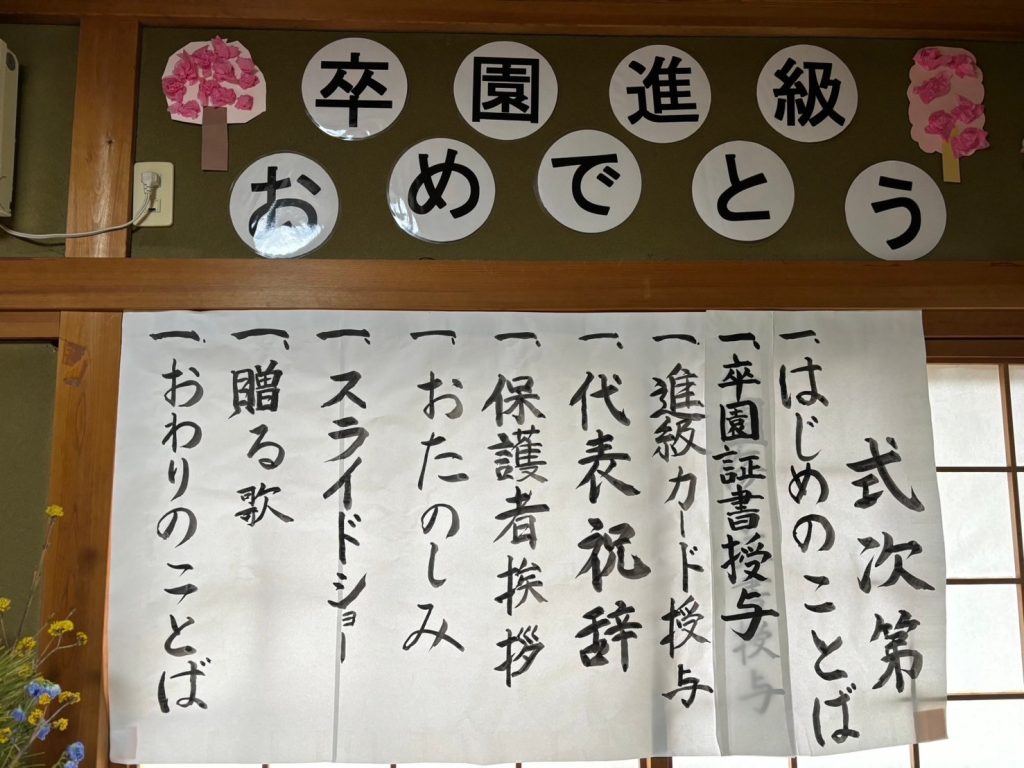 卒園進級
おめでとう
式次第
一、はじめのことば
一、卒園証書授与
一、進級カード授与
一、代表祝辞
一、保護者挨拶
一、おたのしみ
一、スライドショー
一、贈る歌
一、おわりのことば